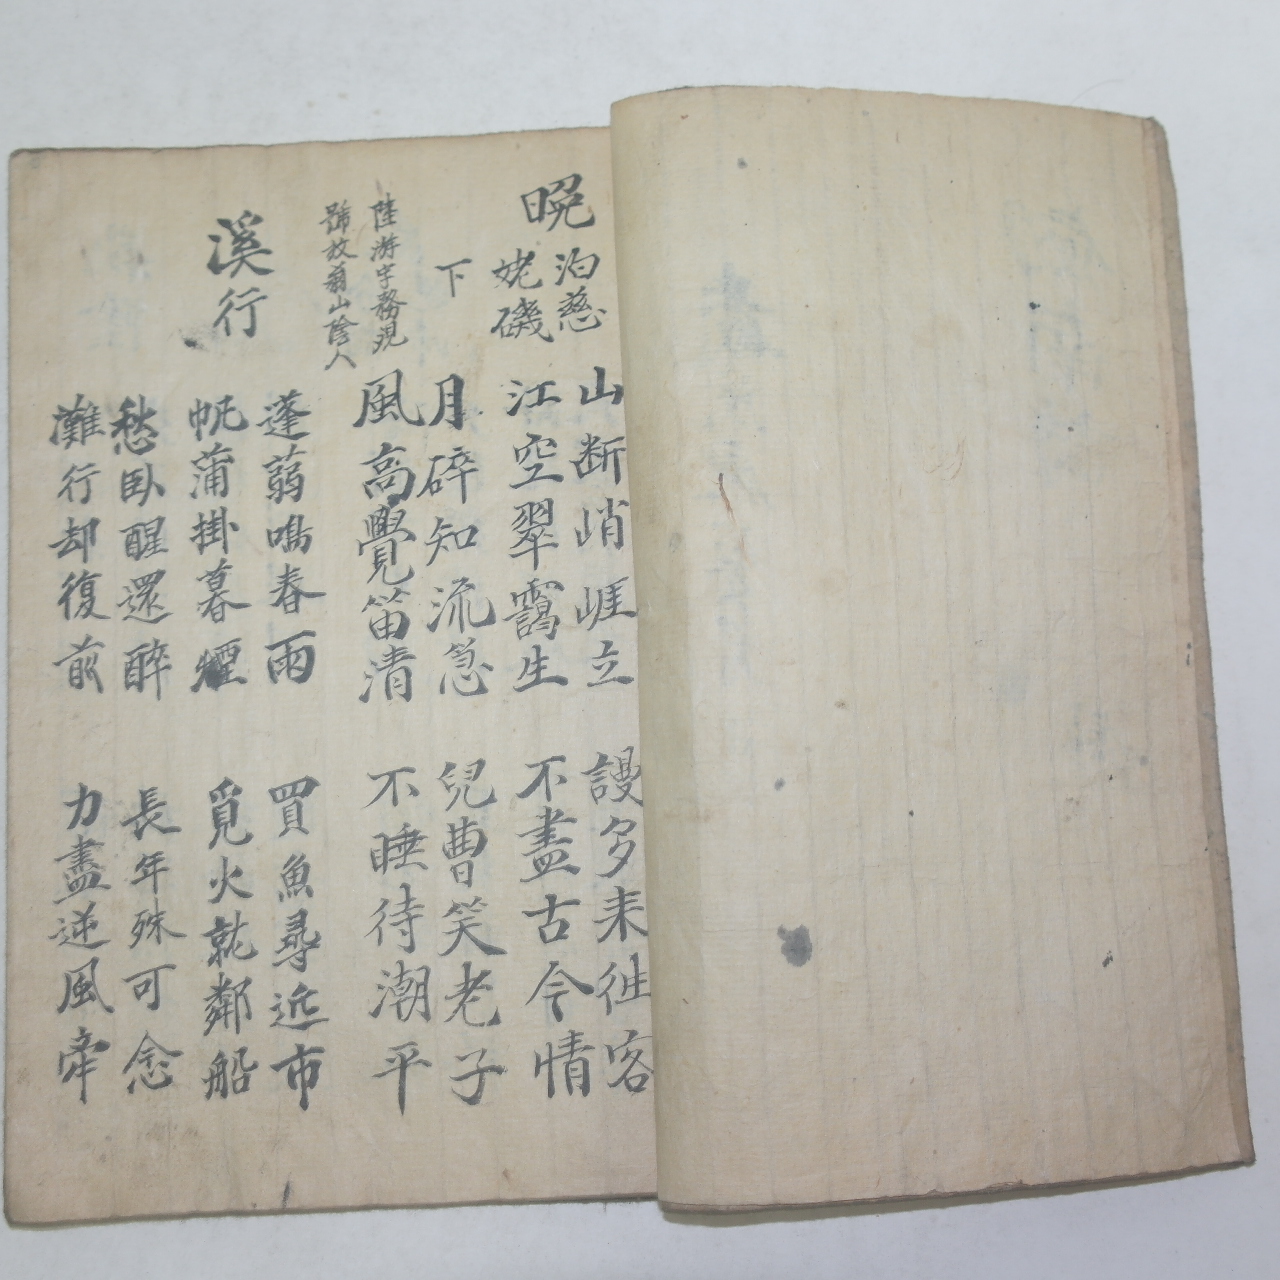 晩泊慈
姥磯
下
陸游字務観
號放翁山陰人
山断峭崕立 謾多来徃客
江空翠靄生 不盡古今情
月碎知流急 兒曹笑老子
風高覺笛清 不睡待潮平
溪行
蓬蒻鳴春雨 買魚尋近市
帆蒲掛暮煙 覓火就鄰船
愁臥醒還醉 長年殊可念
灘行却復前 力盡逆風牽